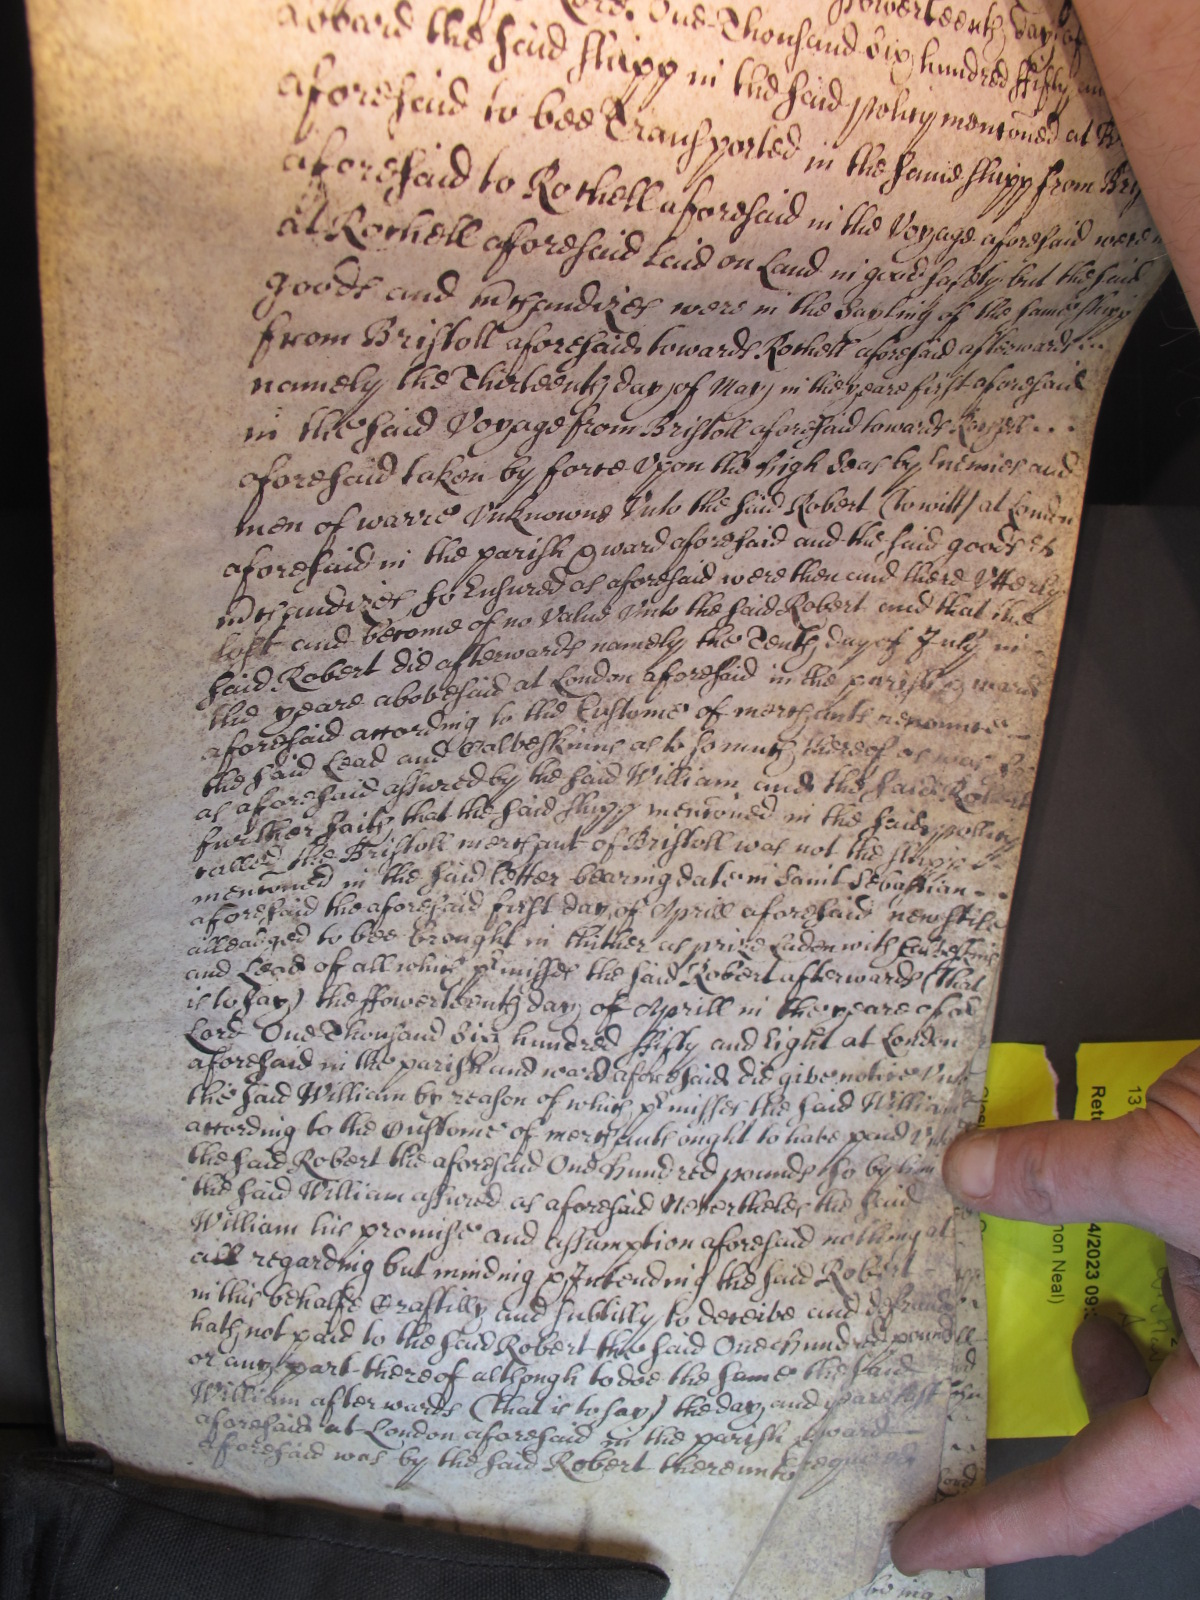 Lord One Thousand Six hundred ffifty an
ffowerteenth day of
aboard the said shipp in the said pollicy mentioned at
aforesaid to bee Transported in the same shipp from Bri
aforesaid to Rochell aforesaid in the Voyage aforesaid were
at Rochell aforesaid laid on Land in good safety but the said
goods and mchandizes were in the Sayling of the same shipp
from Bristoll aforesaid towards Rochell aforesaid afterwards ...
namely the Thirteenth day of May in the yeare first aforesaid
in the said Voyage from Bristoll aforesaid towards Rochell . . .
aforesaid taken by force Vpon the high Seas by Enemies and
men of warre Vnknowne Vnto the said Robert (to witt) at London
aforesaid in the parish & ward aforesaid and the said goods &
mchandizes so Ensured as aforesaid were then and there Vtterly
lost and become of no Value Vnto the said Robert and that the
said Robert did afterwards namely the Tenth day of July in
the yeare abovesaid at London aforesaid in the parish & ward
aforesaid according to the Custome of merchants renounce
the said Lead and Calveskinns as to so much thereof as was
as aforesaid assured by the said William and the said Robert
further saith that the said shipp mentioned in the said pollicy
called the Bristoll merchant of Bristoll was not the shipp
mentioned in the said letter bearing date in Saint Sebastian - -
aforesaid the aforesaid first day of Aprill aforesaid new stile
alleadged to bee brought in thither as prize Laden with
and Lead of all which pmisses the said Robert afterwards (That
is to say) the ffowerteenth day of Aprill in the yeare of or
Lord One Thousand Six hundred ffifty and Eight at London
aforesaid in the parish and ward aforesaid did give notice Vnto
the said William by reason of which pmisses the said William
according to the Custome of merchants ought to have paid Vnto
the said Robert the aforesaid One hundred pounds so by him
the said William assured as aforesaid Neverthelesse the said
William his promise and assumption aforesaid nothing at
all regarding but minding & Intending the said Robert
in this behalfe Craftilly and subtilly to deceive and defraud
hath not paid to the said Robert the said One hundred pounds
or any part thereof although to doe the same the said
William afterwards (that is to say) the day and yeare last
aforesaid at London aforesaid in the parish & ward
aforesaid was by the said Robert thereunto required
13
Retu
4/2023 09:
non Neal)